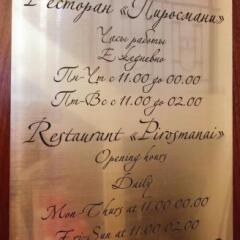 Ресторан «Пиросмани»
Часы работы
Ежедневно
Пн-Чт с 11.00 до 00.00
Пт-Вс с 11.00 до 02.00
Restaurant «Pirosmanai»
Opening hours
Daily
Mon-Thurs at 11.00 00.00
Fri-Sun at 11.00 02.00